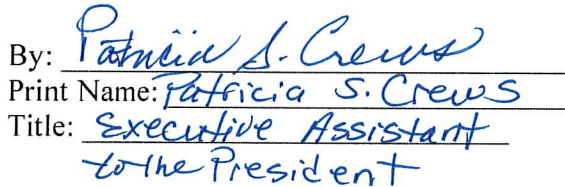 By: Patricia S. Crews
Print Name: Patricia S. Crews
Title: Executive Assistant
to the President